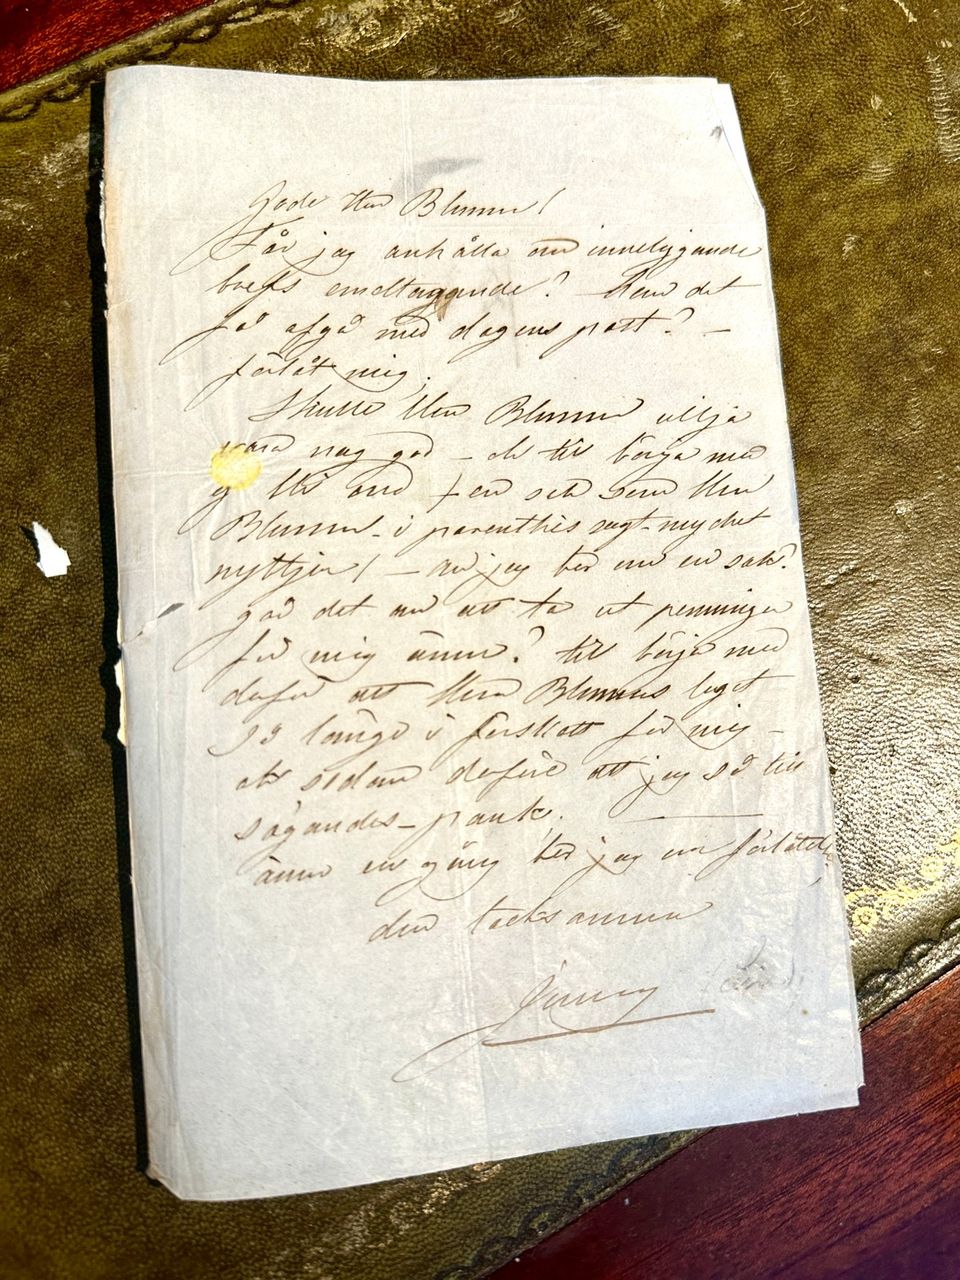 Gode Herr Blumm!
Får jag anhålla om inneliggande
brefs emottaggande? Kan det
få afgå med dagens post? —
förlåt mig.
Skulle Herr Blumm vilja
vara nog god — och till börja med
en sak som Herr
Blumm — i parenthes sagt — mycket
nyttjer! — an jag ber om en sak?
går det an att ta ut penningar
för mig ännu? till börja med
derför att Herr Blumms legat
så länge i förskott för mig —
och sedan derföre att jag så till
sägandes — pank.
ännu en gång ber jag om förlåtelse
den tacksamma
Jenny (Lind)